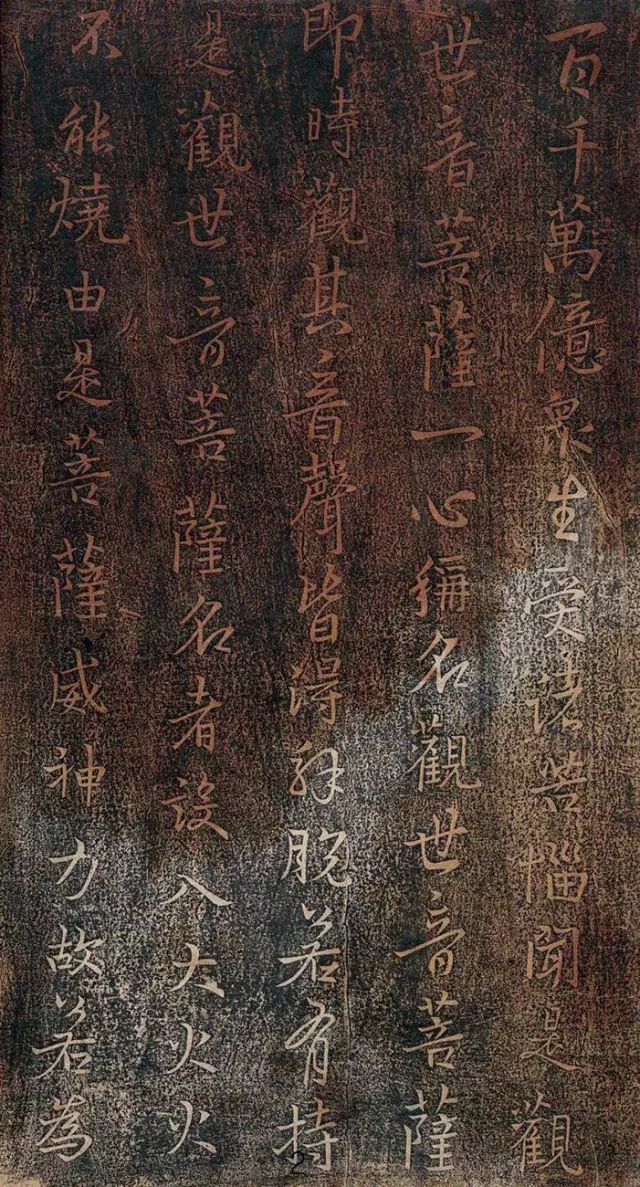 百千萬億衆生受諸苦惱聞是觀
世音菩薩一心稱名觀世音菩薩
即時觀其音聲皆得解脫若有持
是觀世音菩薩名者設入大火火
不能燒由是菩薩威神力故若為
2